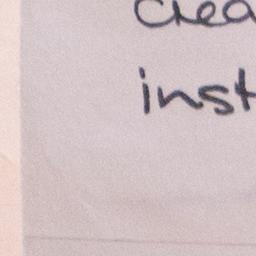 crea
inst